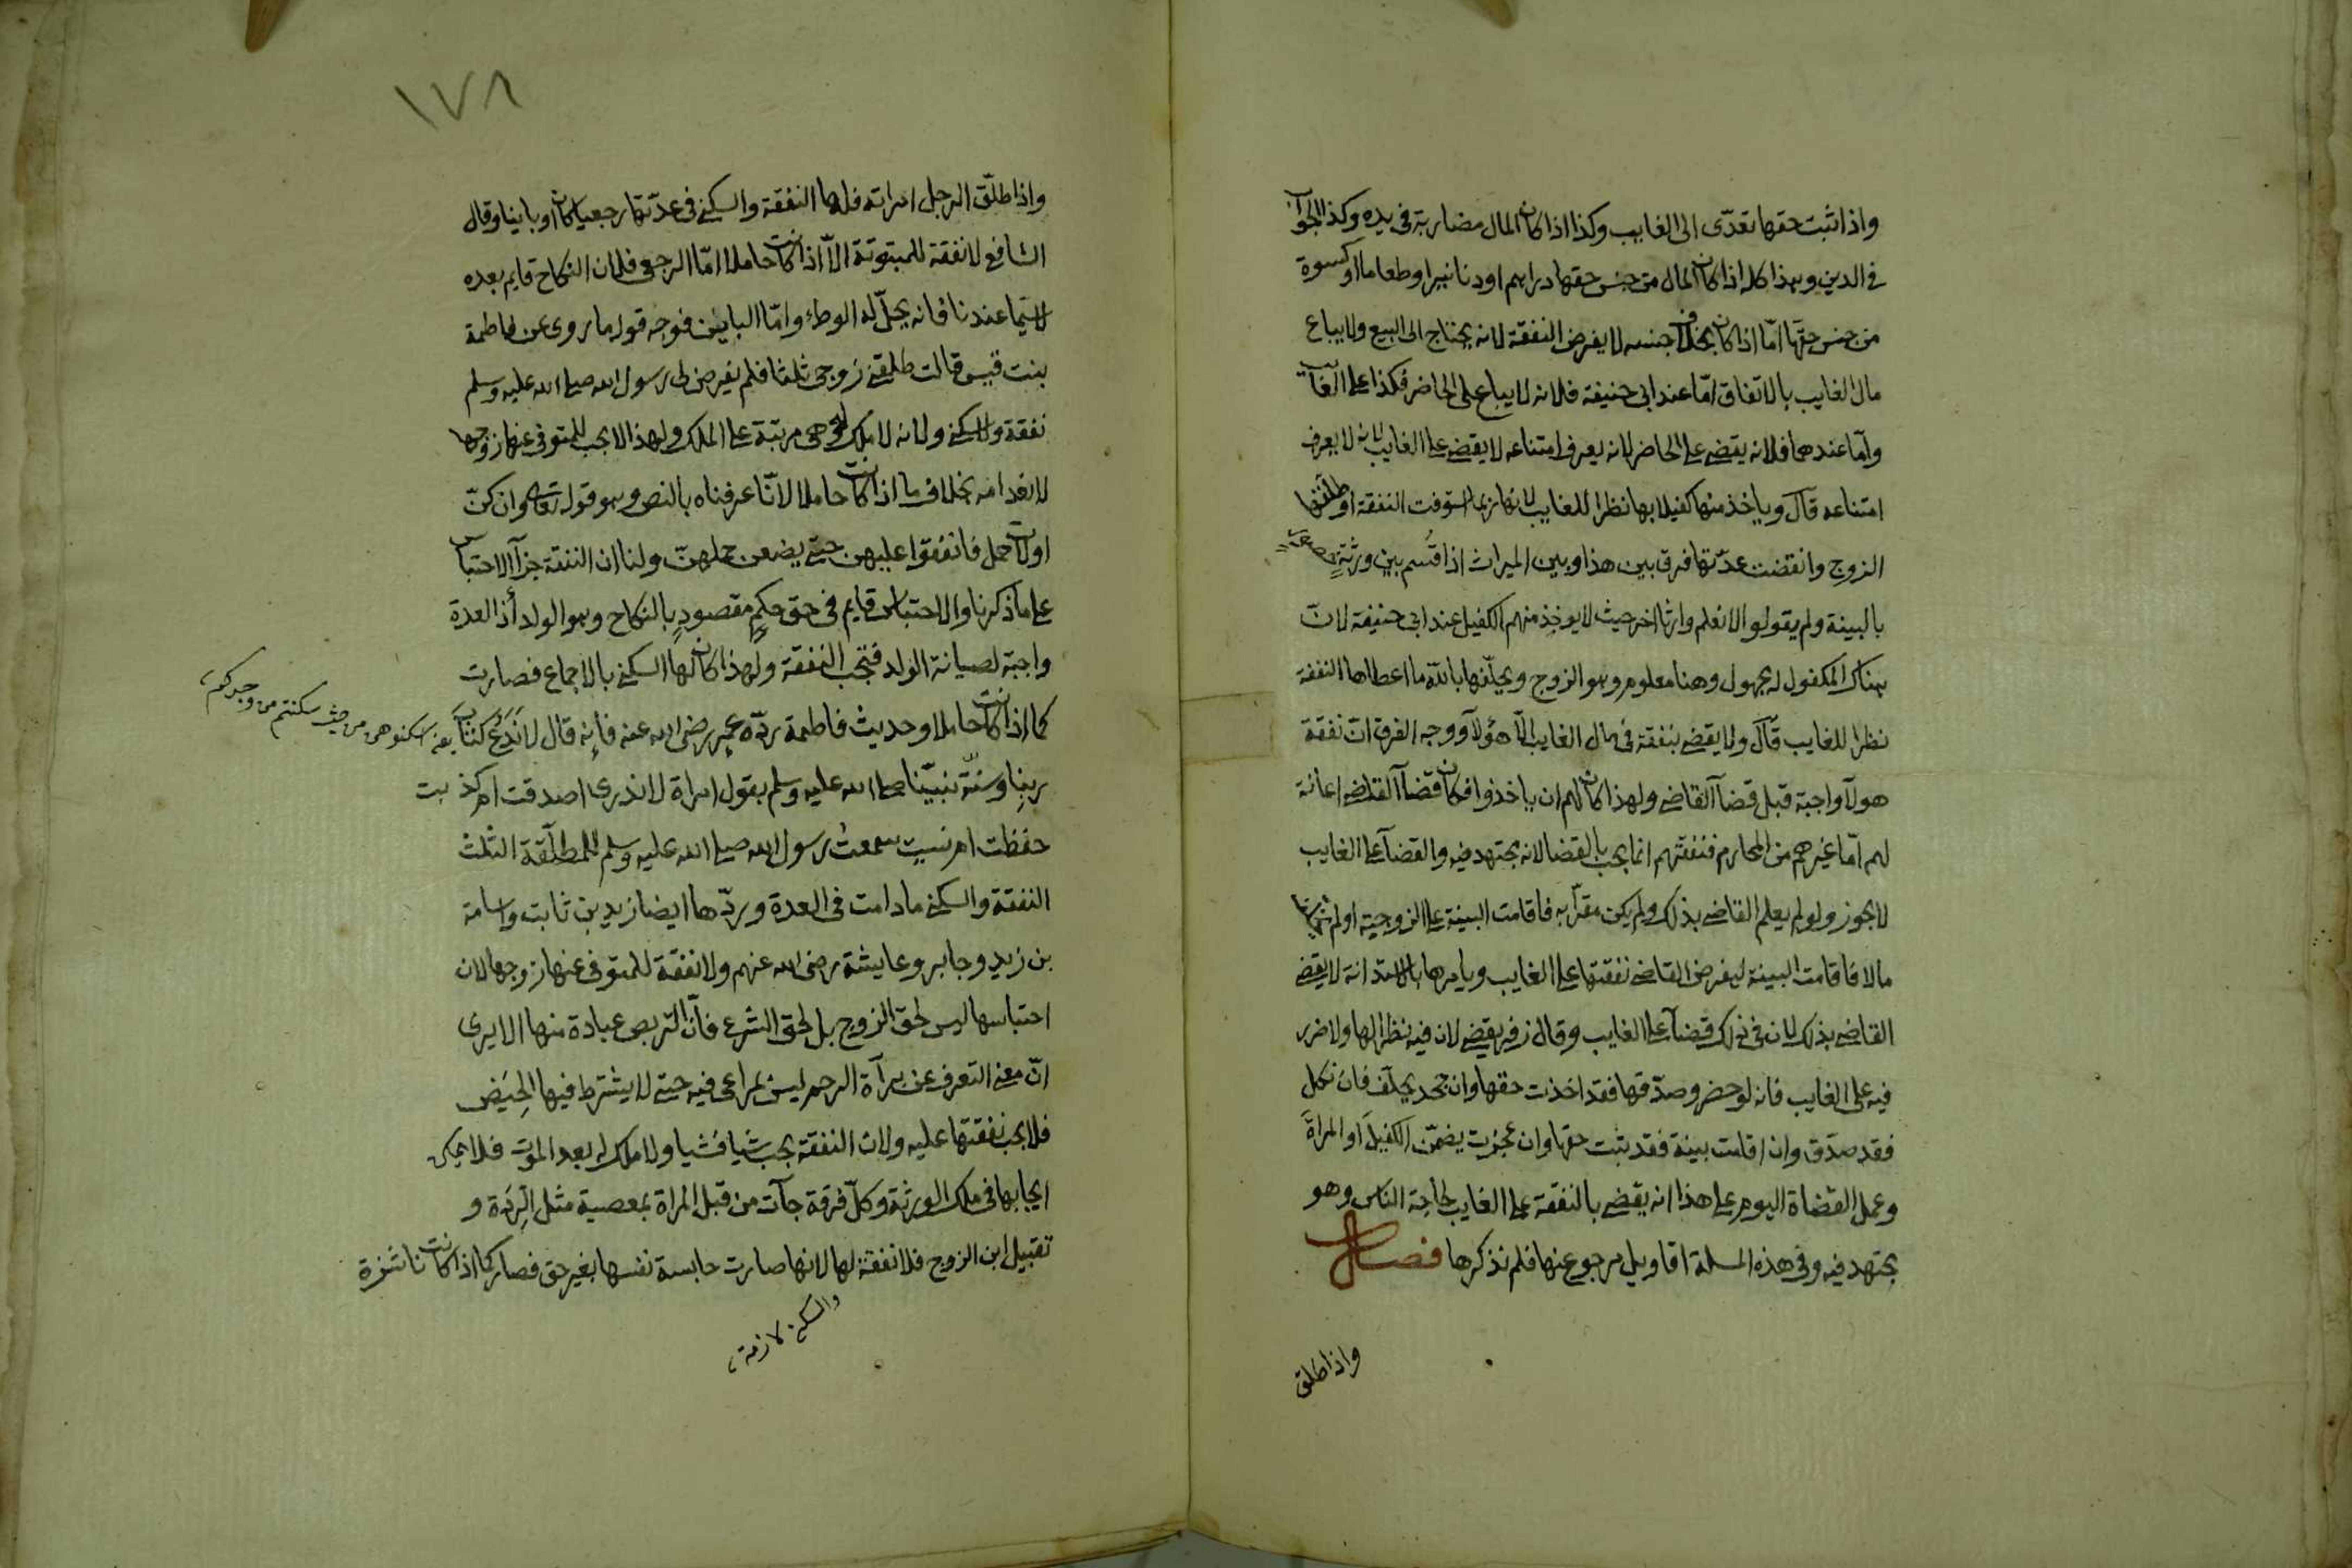 واذا ثبت حقها تعدى الى الغايب وكذا اذا كان المال مضاربة فى يده وكذا الجواب
فى الدين وهذا كله اذا كان المال من جنس حقها دراهم او دنانير او طعاما او كسوة
من جنس حقها امّا اذا كان بخلاف جنسه لا يفرض النفقة لانه يحتاج الى البيع ولا يباع
مال الغايب بالاتفاق امّا عند ابى حنيفة فلانه لا يباع على الحاضر فكذا على الغايب
وامّا عندهما فلانه يقضى على الحاضر لانه يعرف امتناعه لا يقضى على الغايب لانه لا يعرف
امتناعه قال وياخذ منها كفيلا بها نظرا للغايب لانها ربما استوفت النفقة او طلقها
الزوج وانقضت عدّتها فرق بين هذا وبين الميراث اذا قُسم بين ورثةٍ حضور
بالبينة ولم يقولوا لا نعلم وارثا اخر حيث لا يوخذ منهم الكفيل عند ابى حنيفة لان
هناك المكفول له مجهول وهنا معلوم وهو الزوج ويحلّفها بالله ما اعطاها النفقة
نظرا للغايب قال ولا يقضى بنفقة فى مال الغايب الّا هؤلآ ووجه الفرق انّ نفقة
هولآ واجبة قبل قضآ القاضى ولهذا كان لهم ان ياخذوا فكان قضآ القاضى اعانة
لهم امّا غيرهم من المحارم فنفقتهم انما يجب بالقضا لانه مجتهد فيه والقضآ على الغايب
لا يجوز ولو لم يعلم القاضى بذلك ولم يكن مقرّا به فاقامت البينة على الزوجية او لم يخلّف
مالا فاقامت البينة ليفرض القاضى نفقتها على الغايب ويامرها بالاستدانة لا يقضى
القاضى بذلك لان فى ذلك قضآ على الغايب وقال زفر يقضى لان فيه نظرا لها ولا ضرر
فيه على الغايب فانه لو حضر وصدّقها فقد اخذت حقها وان جحد يحلّف فان نكل
فقد صدّق وان اقامت بينة فقد ثبت حقها وان عجزت يضمّن الكفيل او المراة
وعمل القضاة اليوم على هذا انه يقضى بالنفقة على الغايب لحاجة الناس وهو
مجتهد فيه وفى هذه المسلة اقاويل مرجوع عنها فلم نذكرها فصل
واذا طلق
١٧٨
واذا طلّق الرجل امراته فلها النفقة والسكنى فى عدّتها رجعيا كان او باينا وقال
الشافعى لا نفقة للمبتوتة الّا اذا كانت حاملا امّا الرجعى فلان النكاح قايم بعده
لا سيّما عندنا فانه يحلّ له الوطء وامّا البائن فوجه قوله ما روى عن فاطمة
بنت قيس قالت طلقنى زوجى ثلثا فلم يفرض لى رسول الله صلى الله عليه وسلم
نفقة ولا سكنى ولانه لا ملك له وهى مرتبة على الملك ولهذا لا يجب للمتوفى عنها زوجها
لانعدامه بخلاف ما اذا كانت حاملا لانّا عرفناه بالنص وهو قوله تعالى وان كنّ
اولات حمل فانفقوا عليهن حتى يضعن حملهنّ ولنا ان النفقة جزآ الاحتباس
على ما ذكرنا والاحتباس قايم فى حق حكمٍ مقصودٍ بالنكاح وهو الولد اذ العدة
واجبة لصيانة الولد فتجب النفقة ولهذا كان لها السكنى بالاجماع فصارت
كما اذا كانت حاملا وحديث فاطمة ردّه عمر رضى الله عنه فانه قال لا نَدَعُ كتابَ
يعنى اسكنوهن من حيث سكنتم من وجدكم
ربنا وسنّة نبيّنا صلى الله عليه وسلم بقول امراة لا ندرى اصدقت ام كذبت
حفظت ام نسيت سمعت رسول الله صلى الله عليه وسلم للمطلّقة الثلث
النفقة والسكنى ما دامت فى العدة وردّها ايضا زيد بن ثابت واسامة
بن زيد وجابر وعايشة رضى الله عنهم ولا نفقة للمتوفى عنها زوجها لان
احتباسها ليس لحق الزوج بل لحق الشرع فانّ التربص عبادة منها الا يرى
انّ معنى التعرف عن برآة الرحم ليس بمراعى فيه حتى لا يشترط فيها الحيَض
فلا يجب نفقتها عليه ولان النفقة يجب شيا فشيا ولا ملك له بعد الموت فلا يمكن
ايجابها فى ملك الورثة وكلّ فرقة جآت من قبل المراة بمعصية مثل الرِدّة و
تقبيل ابن الزوج فلا نفقة لها لانها صارت حابسة نفسها بغير حق فصار كما اذا كانت ناشزة
والسكنى لازمة